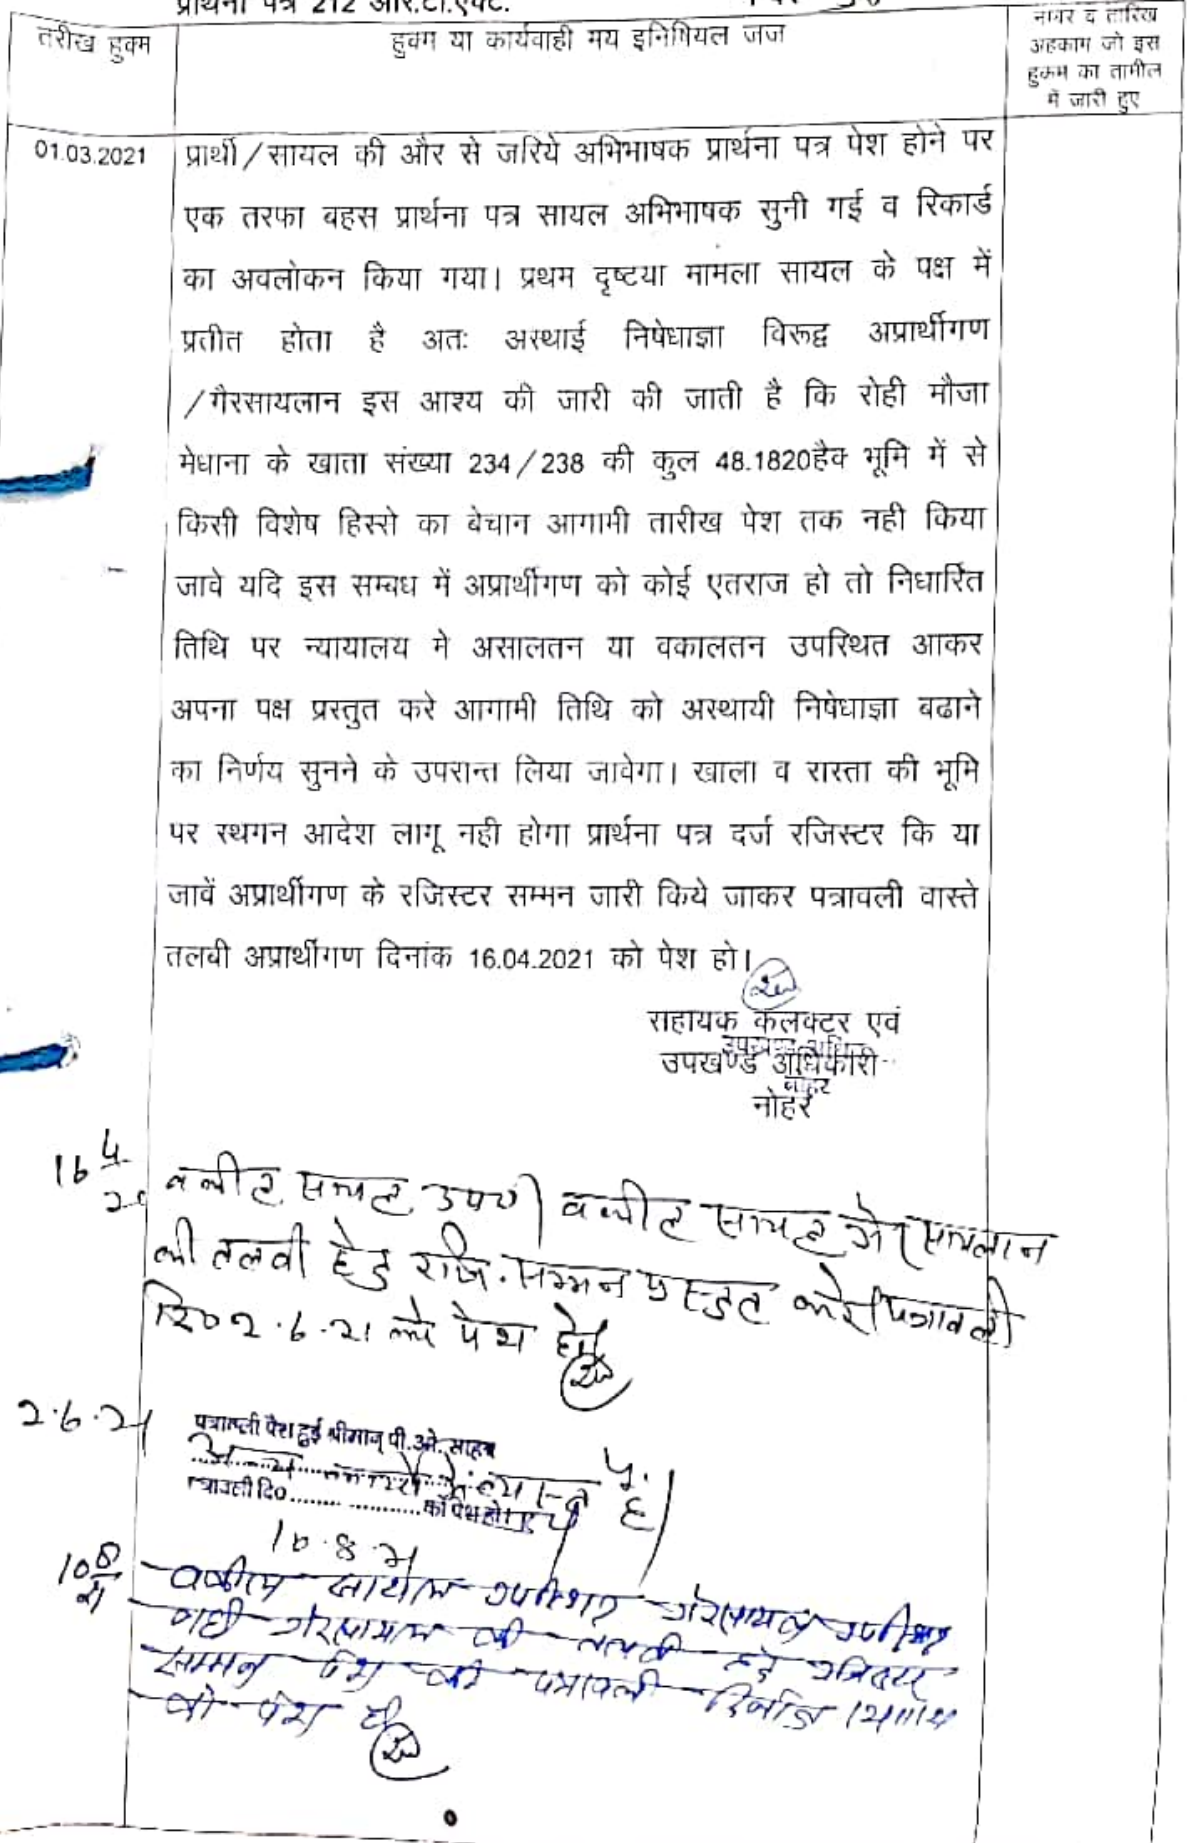 प्रार्थना पत्र 212 आर.टी.एक्ट.
तरीख हुक्म
हुक्म या कार्यवाही मय इनिषियल जज
नम्बर व तारिख
अहकाम जो इस
हुकम का तामील
में जारी हुए
01.03.2021
प्रार्थी/सायल की और से जरिये अभिभाषक प्रार्थना पत्र पेश होने पर
एक तरफा बहस प्रार्थना पत्र सायल अभिभाषक सुनी गई व रिकार्ड
का अवलोकन किया गया। प्रथम दृष्टया मामला सायल के पक्ष में
प्रतीत होता है अतः अस्थाई निषेधाज्ञा विरूद्व अप्रार्थीगण
/गैरसायलान इस आश्य की जारी की जाती है कि रोही मौजा
मेधाना के खाता संख्या 234/238 की कुल 48.1820हैक भूमि में से
किसी विशेष हिस्से का बेचान आगामी तारीख पेश तक नही किया
जावे यदि इस सम्बध में अप्रार्थीगण को कोई एतराज हो तो निधारित
तिथि पर न्यायालय मे असालतन या वकालतन उपस्थित आकर
अपना पक्ष प्रस्तुत करे आगामी तिथि को अस्थायी निषेधाज्ञा बढाने
का निर्णय सुनने के उपरान्त लिया जावेगा। खाला व रास्ता की भूमि
पर स्थगन आदेश लागू नही होगा प्रार्थना पत्र दर्ज रजिस्टर कि या
जावें अप्रार्थीगण के रजिस्टर सम्मन जारी किये जाकर पत्रावली वास्ते
तलबी अप्रार्थीगण दिनांक 16.04.2021 को पेश हो।
सहायक कलक्टर एवं
उपखण्ड अधिकारी
नोहर
वकील सायल उप०। वकील सायल गैरसायलान
की तलबी हेतु रजि. सम्मन प्रस्तुत करे। पत्रावली
दि० 2.6.21 को पेश हो।
2.6.21
पत्रावली पेश हुई श्रीमान् पी.ओ. साहब
अन्य कार्यो में व्यस्त है।
पत्रावली दि०........ को पेश हो।
वकील सायल उपस्थित गैरसायल उपस्थित
नही गैरसायलान की तलबी हेतु रजिस्टर
सम्मन पेश की पत्रावली
को पेश हो